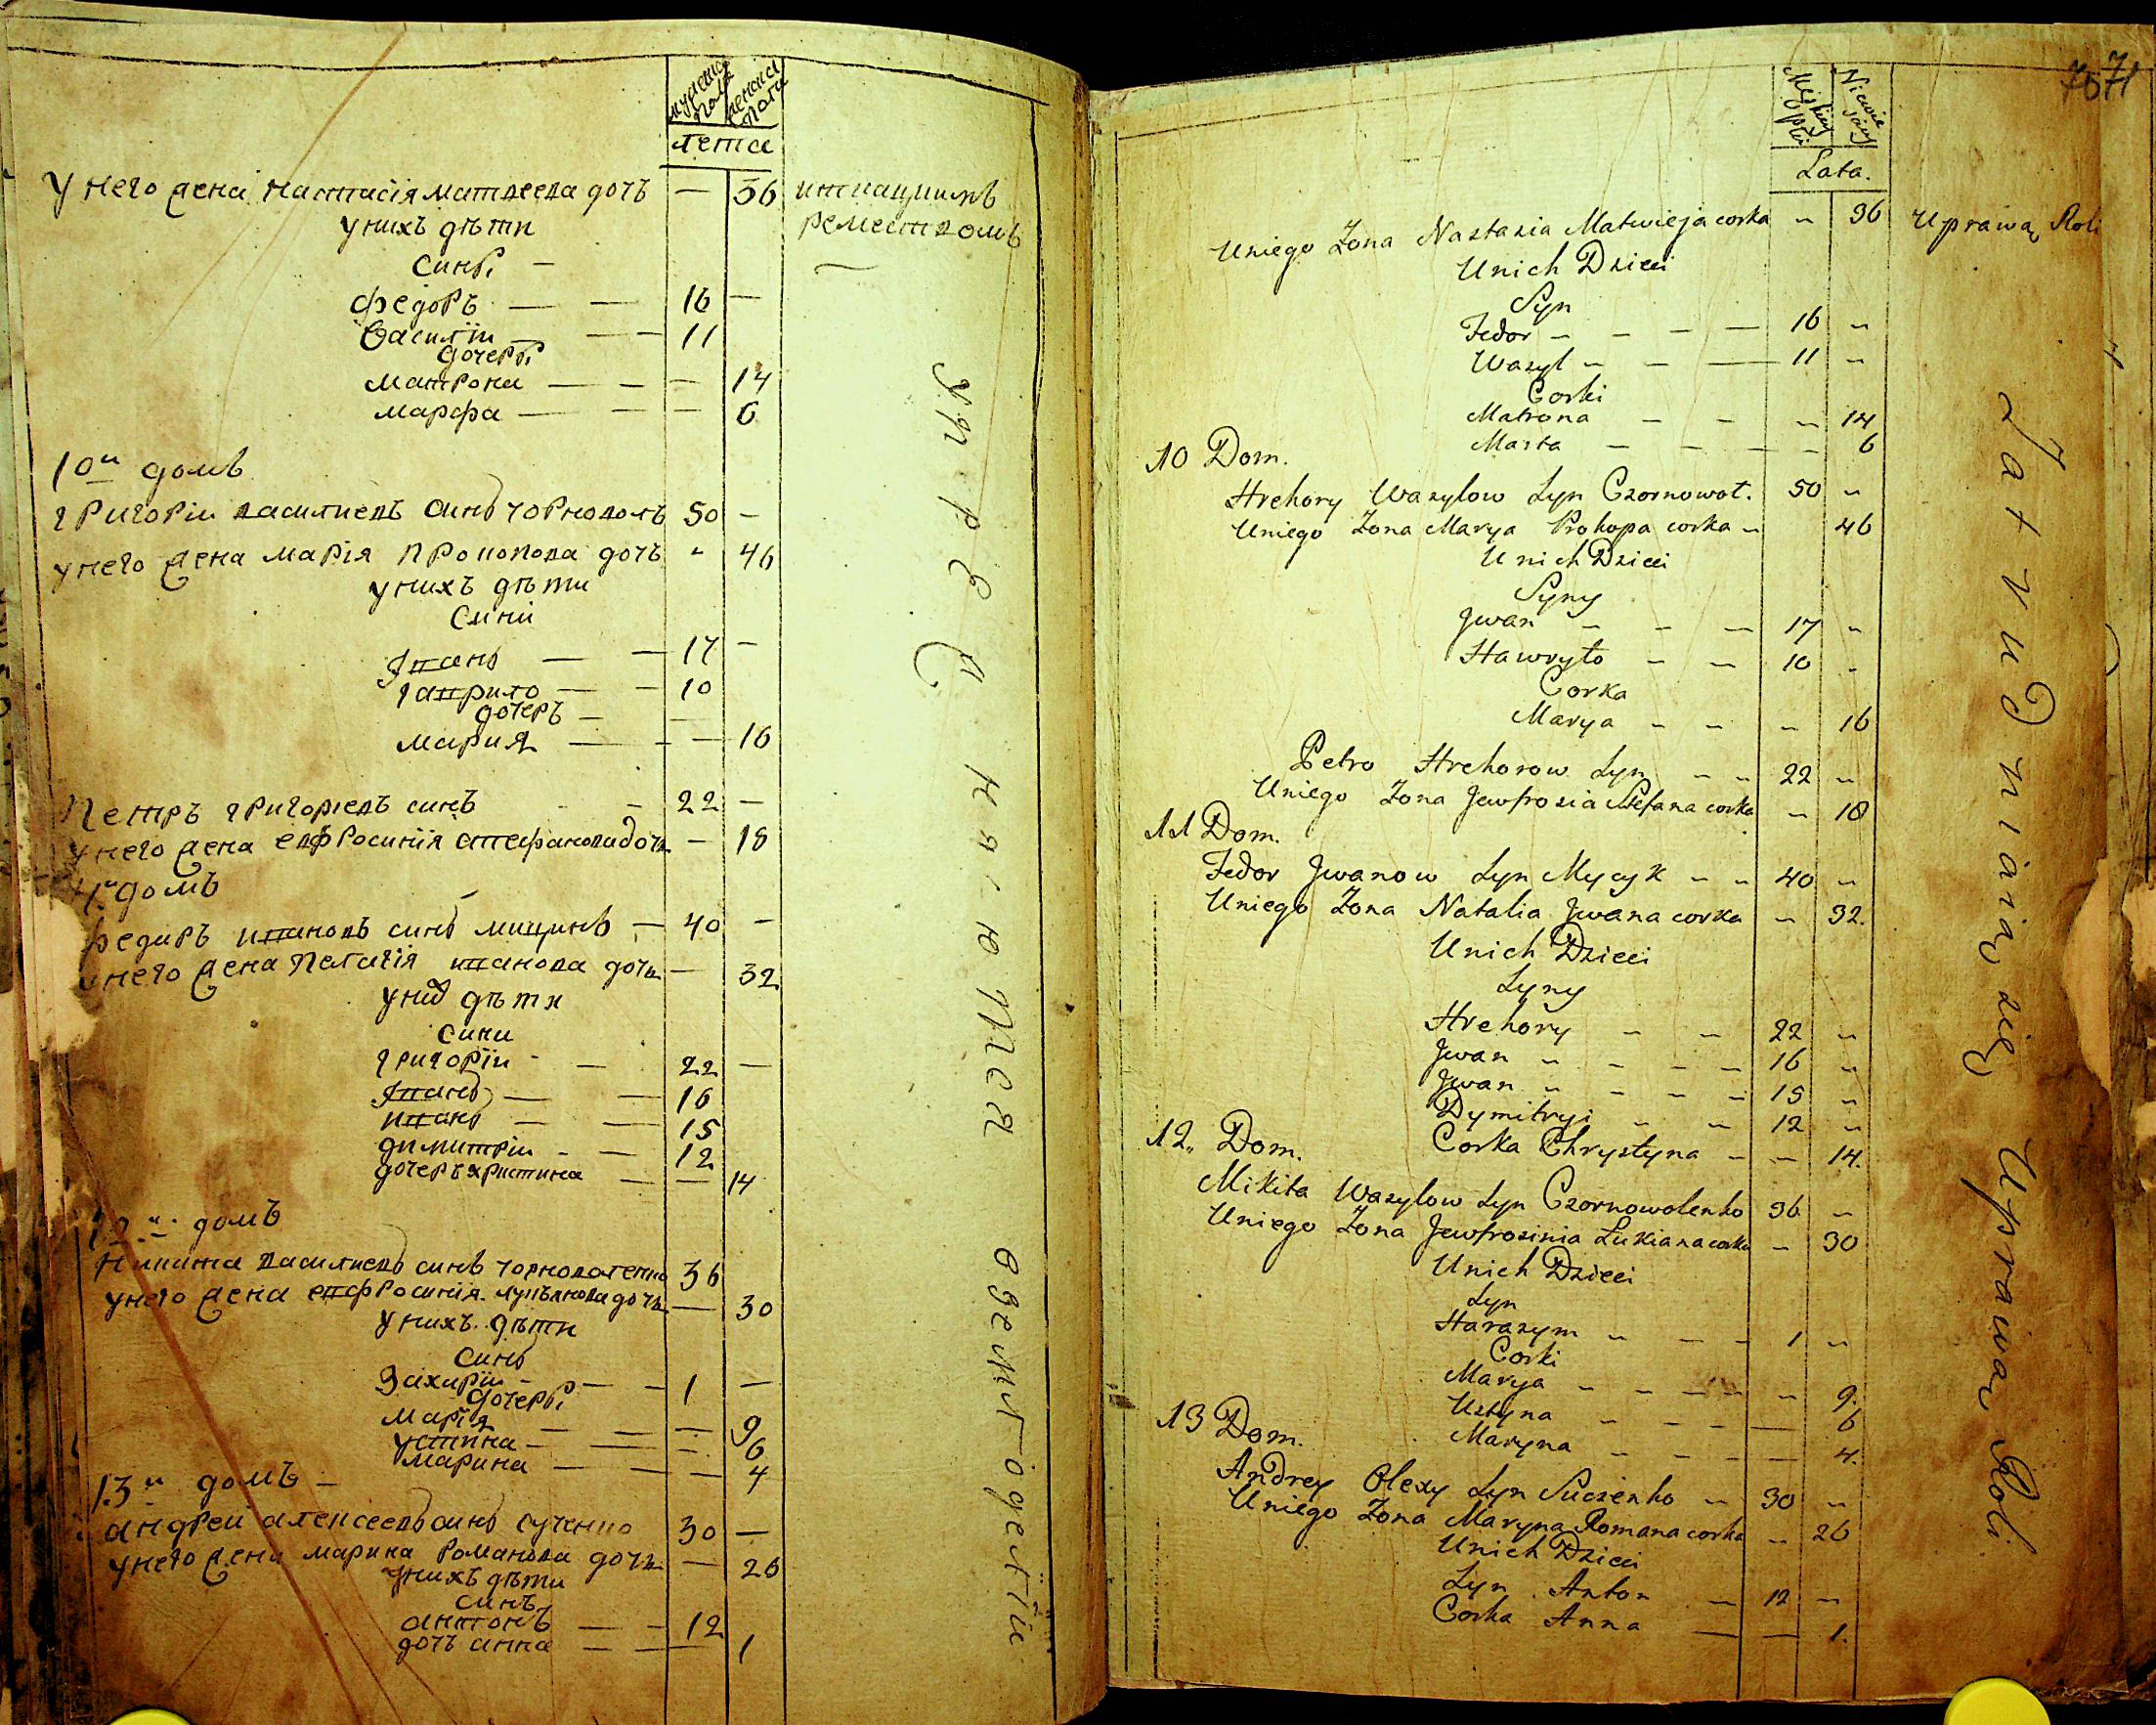 мужеска пола
женска пола
лета
у него жена настасія матвеева дочъ — 36
ткацкимъ
ремествомъ
у нихъ дѣти
синьі —
федоръ — — 16 —
василіи — — 11
дочерьі
матрона — — — 14
марфа — — — 6
10и домъ
григоріи василиевъ синъ чорноволъ 50 —
у него жена марія прокопова дочъ - 46
у нихъ дѣти
сини
Іванъ — — 17 —
гаврило — — 10
дочеръ —
мария — — — 16
Петръ григориевъ синъ - - 22 —
у него жена евфросинія стефанова дочъ — 18
домъ
федиръ ивановъ синъ мицикъ — 40 —
у него жена Пелагія иванова дочъ — 32
у них дѣти
сини
григоріи - — 22 —
Іванъ — — 16
иванъ — — 15
димитріи - — 12
дочеръ христина — — 14
12и домъ
никита василиевъ синъ чорноволенко 36
у него жена евфросинія лукъянова дочъ — 30
у нихъ дѣти
синъ
Захиріи - — — 1 —
дочерьі
марія — — — 9
устина — — — 6
марина — — — 4
13и домъ —
андреи алексеевъ синъ сученко 30 —
у него жена марина романова дочъ — 26
у нихъ дѣти
синъ
антонъ — — 12
дочъ анна — — — 1
упражняются оземлюделіи
71
Męskiey płci
Lata.
Uniego Żona Nastazia Matwieja corka „ 36 Uprawą Roli
Unich Dzieci
Syn
Fedor — — — — 16 „
Wasyl — — — 11 „
Corki
Matrona — — „ 14
Marta — — — — 6
10 Dom.
Hrehory Wasylow Syn Czornowoł. 50 „
Uniego Żona Marya Prokopa corka „ 46
Unich Dzieci
Syny
Jwan — — — 17 „
Hawryło — — 10 „
Corka
Marya — — — 16
Petro Hrehorow Syn „ „ 22 „
Uniego Żona Jewfrosia Stefana corka „ 18
11 Dom.
Fedor Jwanow Syn Mycyk „ „ 40 „
Uniego Żona Natalia Jwana corka „ 32.
Unich Dzieci
Syny
Hrehory — — 22 „
Jwan „ — — — 16 „
Jwan „ — — — 15 „
Dymitryi „ „ 12 „
12„ Dom. Corka Chrystyna — — 14.
Mikita Wasylow Syn Czornowolenko 36 „
Uniego Żona Jewfrosinia Łukiana corka „ 30
Unich Dzieci
Syn
Harasym „ — — 1 „
Corki
Marya „ — — — „ 9.
Ustyna — — — — 6
13 Dom. Maryna — — — — 4.
Andrey Olexy Syn Suczenko „ 30 „
Uniego Żona Maryna Romana corka „ 26
Unich Dzieci
Syn Anton — 12 „
Corka Anna — — 1.
Zatrudniaią się Uprawą Roli